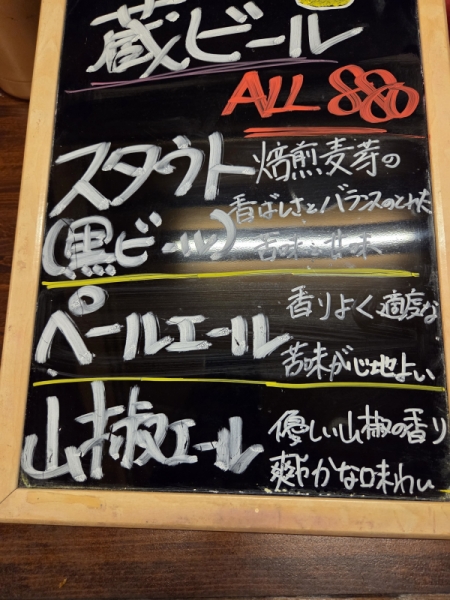 蔵ビール
ALL 880
スタウト
(黒ビール)
焙煎麦芽の
香ばしさとバランスのとれた
苦味と甘味
ペールエール
香りよく適度な
苦味が心地よい
山椒エール
優しい山椒の香り
爽やかな味わい